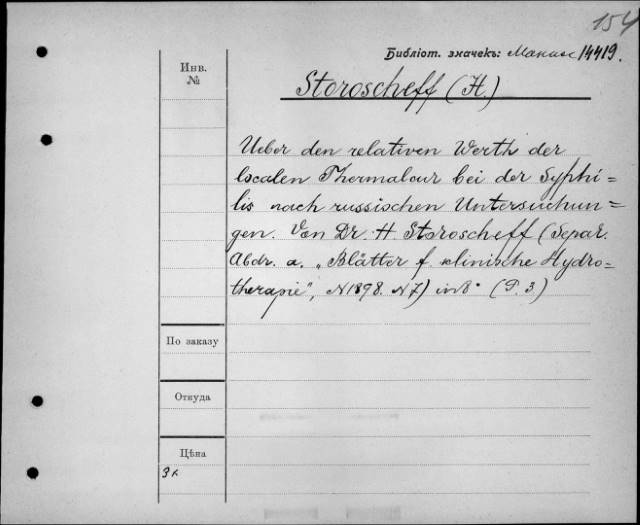 154
Библіот. значекъ: 14419.
Инв.
№
Storoscheff (H.)
Ueber den relativen Werth der
localen Thermalcur bei der Syphi=
lis nach russischen Untersuchun=
gen. Von Dr. H. Storoscheff (Separ.
Abdr. a. „Blätter f. klinische Hydro=
therapie", N 1898. N 7) in 8° (P. 3)
По заказу
Откуда
Цѣна
3к